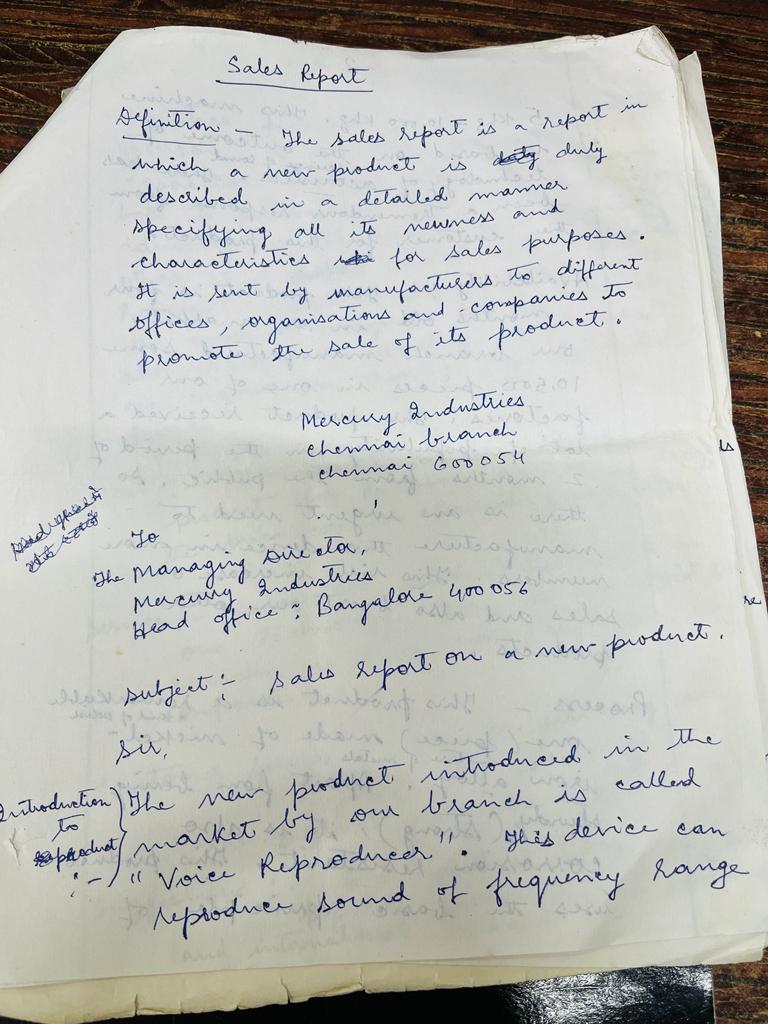 Sales Report
Definition - The sales report is a report in
which a new product is duly
described in a detailed manner
specifying all its newness and
characteristics for sales purposes.
It is sent by manufacturers to different
offices, organisations and companies to
promote the sale of its product.
Mercury Industries
Chennai branch
Chennai 600054
To
The Managing Director,
Mercury Industries
Head office : Bangalore 400056
Subject :- Sales report on a new product.
Sir,
Introduction to product :-
The new product introduced in the
market by our branch is called
"Voice Reproducer". This device can
reproduce sound of frequency range